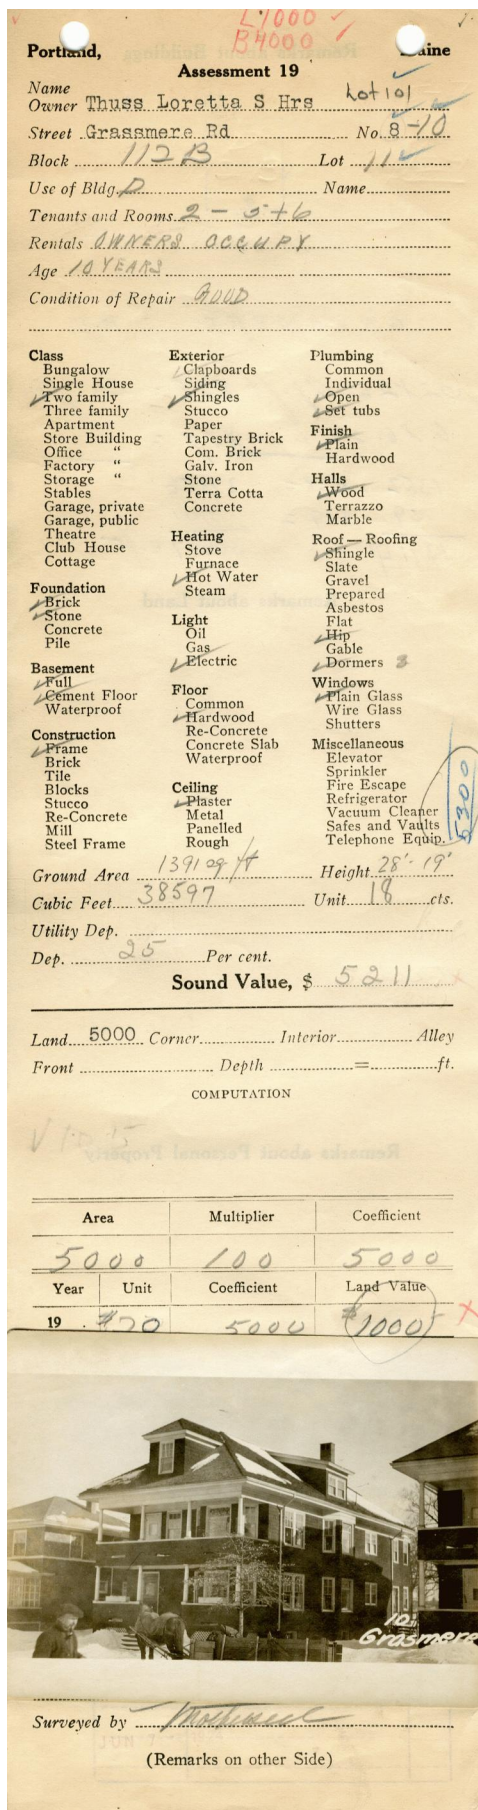 L1000
B4000
Portland, Maine
Assessment 19
Name
Owner Thuss Loretta S Hrs Lot 101
Street Grassmere Rd No. 8-10
Block 112 B Lot 11
Use of Bldg. D Name
Tenants and Rooms 2 - 5+6
Rentals OWNERS OCCUPY
Age 10 YEARS
Condition of Repair GOOD
Class
Bungalow
Single House
Two family
Three family
Apartment
Store Building
Office "
Factory "
Storage "
Stables
Garage, private
Garage, public
Theatre
Club House
Cottage
Foundation
Brick
Stone
Concrete
Pile
Basement
Full
Cement Floor
Waterproof
Construction
Frame
Brick
Tile
Blocks
Stucco
Re-Concrete
Mill
Steel Frame
Exterior
Clapboards
Siding
Shingles
Stucco
Paper
Tapestry Brick
Com. Brick
Galv. Iron
Stone
Terra Cotta
Concrete
Heating
Stove
Furnace
Hot Water
Steam
Light
Oil
Gas
Electric
Floor
Common
Hardwood
Re-Concrete
Concrete Slab
Waterproof
Ceiling
Plaster
Metal
Panelled
Rough
Plumbing
Common
Individual
Open
Set tubs
Finish
Plain
Hardwood
Halls
Wood
Terrazzo
Marble
Roof — Roofing
Shingle
Slate
Gravel
Prepared
Asbestos
Flat
Hip
Gable
Dormers 3
Windows
Plain Glass
Wire Glass
Shutters
Miscellaneous
Elevator
Sprinkler
Fire Escape
Refrigerator
Vacuum Cleaner
Safes and Vaults
Telephone Equip.
5300
Ground Area 1391 sq ft Height 28'- 19'
Cubic Feet 38597 Unit 18 cts.
Utility Dep.
Dep. 25 Per cent.
Sound Value, $ 5211
Land 5000 Corner Interior Alley
Front Depth = ft.
COMPUTATION
Area Multiplier Coefficient
5000 100 5000
Year Unit Coefficient Land Value
19 . $20 5000 $1000
10
Grasmere
Surveyed by
JUN
(Remarks on other Side)